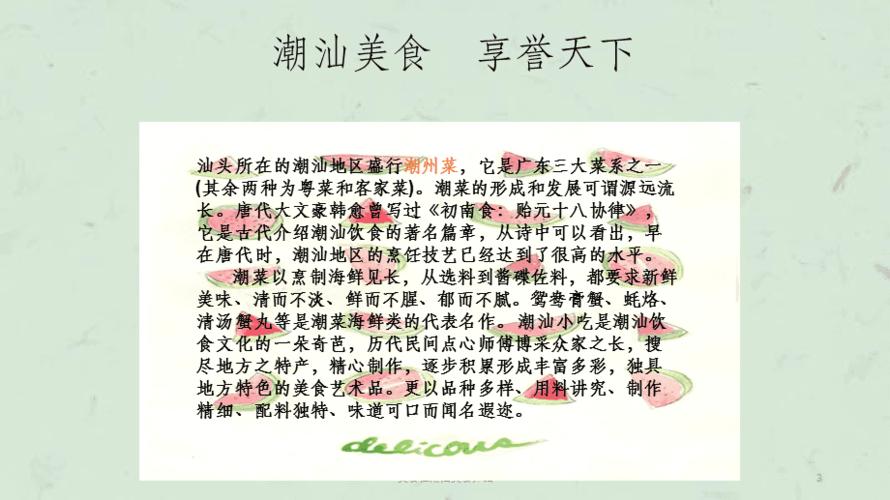 潮汕美食 享誉天下
汕头所在的潮汕地区盛行潮州菜，它是广东三大菜系之一
(其余两种为粤菜和客家菜)。潮菜的形成和发展可谓源远流
长。唐代大文豪韩愈曾写过《初南食：贻元十八协律》，
它是古代介绍潮汕饮食的著名篇章，从诗中可以看出，早
在唐代时，潮汕地区的烹饪技艺已经达到了很高的水平。
潮菜以烹制海鲜见长，从选料到酱碟佐料，都要求新鲜
美味、清而不淡、鲜而不腥、郁而不腻。鸳鸯膏蟹、蚝烙、
清汤蟹丸等是潮菜海鲜类的代表名作。潮汕小吃是潮汕饮
食文化的一朵奇芭，历代民间点心师傅博采众家之长，搜
尽地方之特产，精心制作，逐步积累形成丰富多彩，独具
地方特色的美食艺术品。更以品种多样、用料讲究、制作
精细、配料独特、味道可口而闻名遐迩。
delicous
3